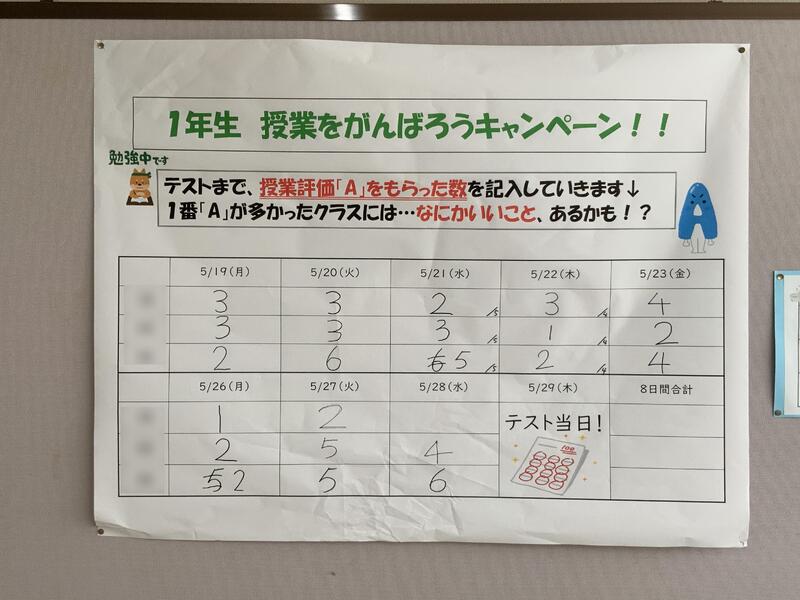 1年生 授業をがんばろうキャンペーン！！
勉強中です
テストまで、授業評価「A」をもらった数を記入していきます↓
1番「A」が多かったクラスには…なにかいいこと、あるかも！？
A
5/19(月) 5/20(火) 5/21(水) 5/22(木) 5/23(金)
3 3 2 /5 3 /4 4
3 3 3 /5 1 /4 2
2 6 6 5 /5 2 /4 4
5/26(月) 5/27(火) 5/28(水) 5/29(木) 8日間合計
1 2
テスト当日！
2 5 4
100
5 2 5 6